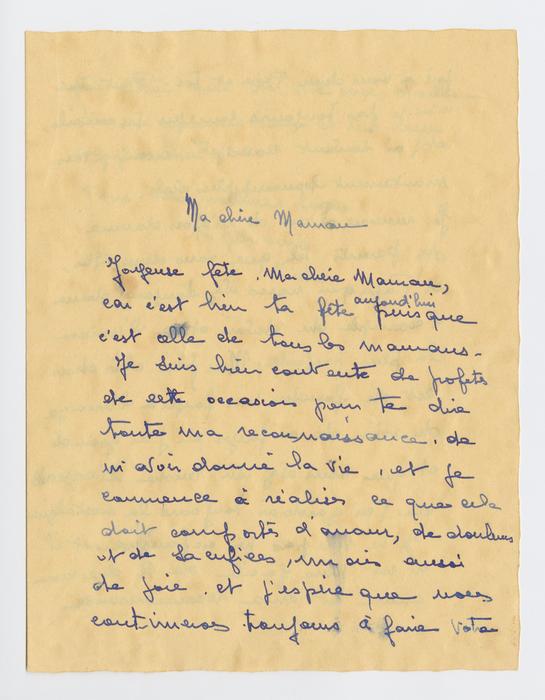 Ma chère Maman
Joyeuse fête, Ma chère Maman,
car c'est bien ta fête aujourd'hui puisque
c'est celle de tous les mamans.
Je suis bien contente de profiter
de cette occasion pour te dire
toute ma reconnaissance, de
m'avoir donné la vie, et je
commence à réaliser ce que cela
doit comporter d'amour, de douleurs
et de sacrifices, mais aussi
de joie, et j'espère que nous
continuerons toujours à faire votre